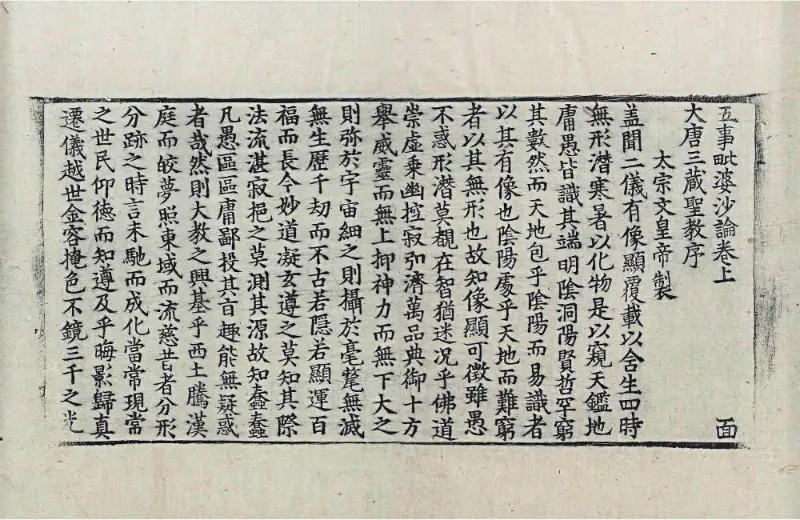 五事毗婆沙論卷上 面
大唐三藏聖教序
太宗文皇帝製
盖聞二儀有像顯覆載以含生四時
無形潛寒暑以化物是以窺天鑑地
庸愚皆識其端明陰洞陽賢哲罕窮
其數然而天地包乎陰陽而易識者
以其有像也陰陽處乎天地而難窮
者以其無形也故知像顯可徵雖愚
不惑形潛莫覩在智猶迷況乎佛道
崇虛乘幽控寂弘濟萬品典御十方
舉威靈而無上抑神力而無下大之
則弥於宇宙細之則攝於毫氂無滅
無生歷千劫而不古若隱若顯運百
福而長今妙道凝玄遵之莫知其際
法流湛寂挹之莫測其源故知蠢蠢
凡愚區區庸鄙投其旨趣能無疑惑
者哉然則大教之興基乎西土騰漢
庭而皎夢照東域而流慈昔者分形
分跡之時言未馳而成化當常現常
之世民仰德而知遵及乎晦影歸真
遷儀越世金容掩色不鏡三千之光